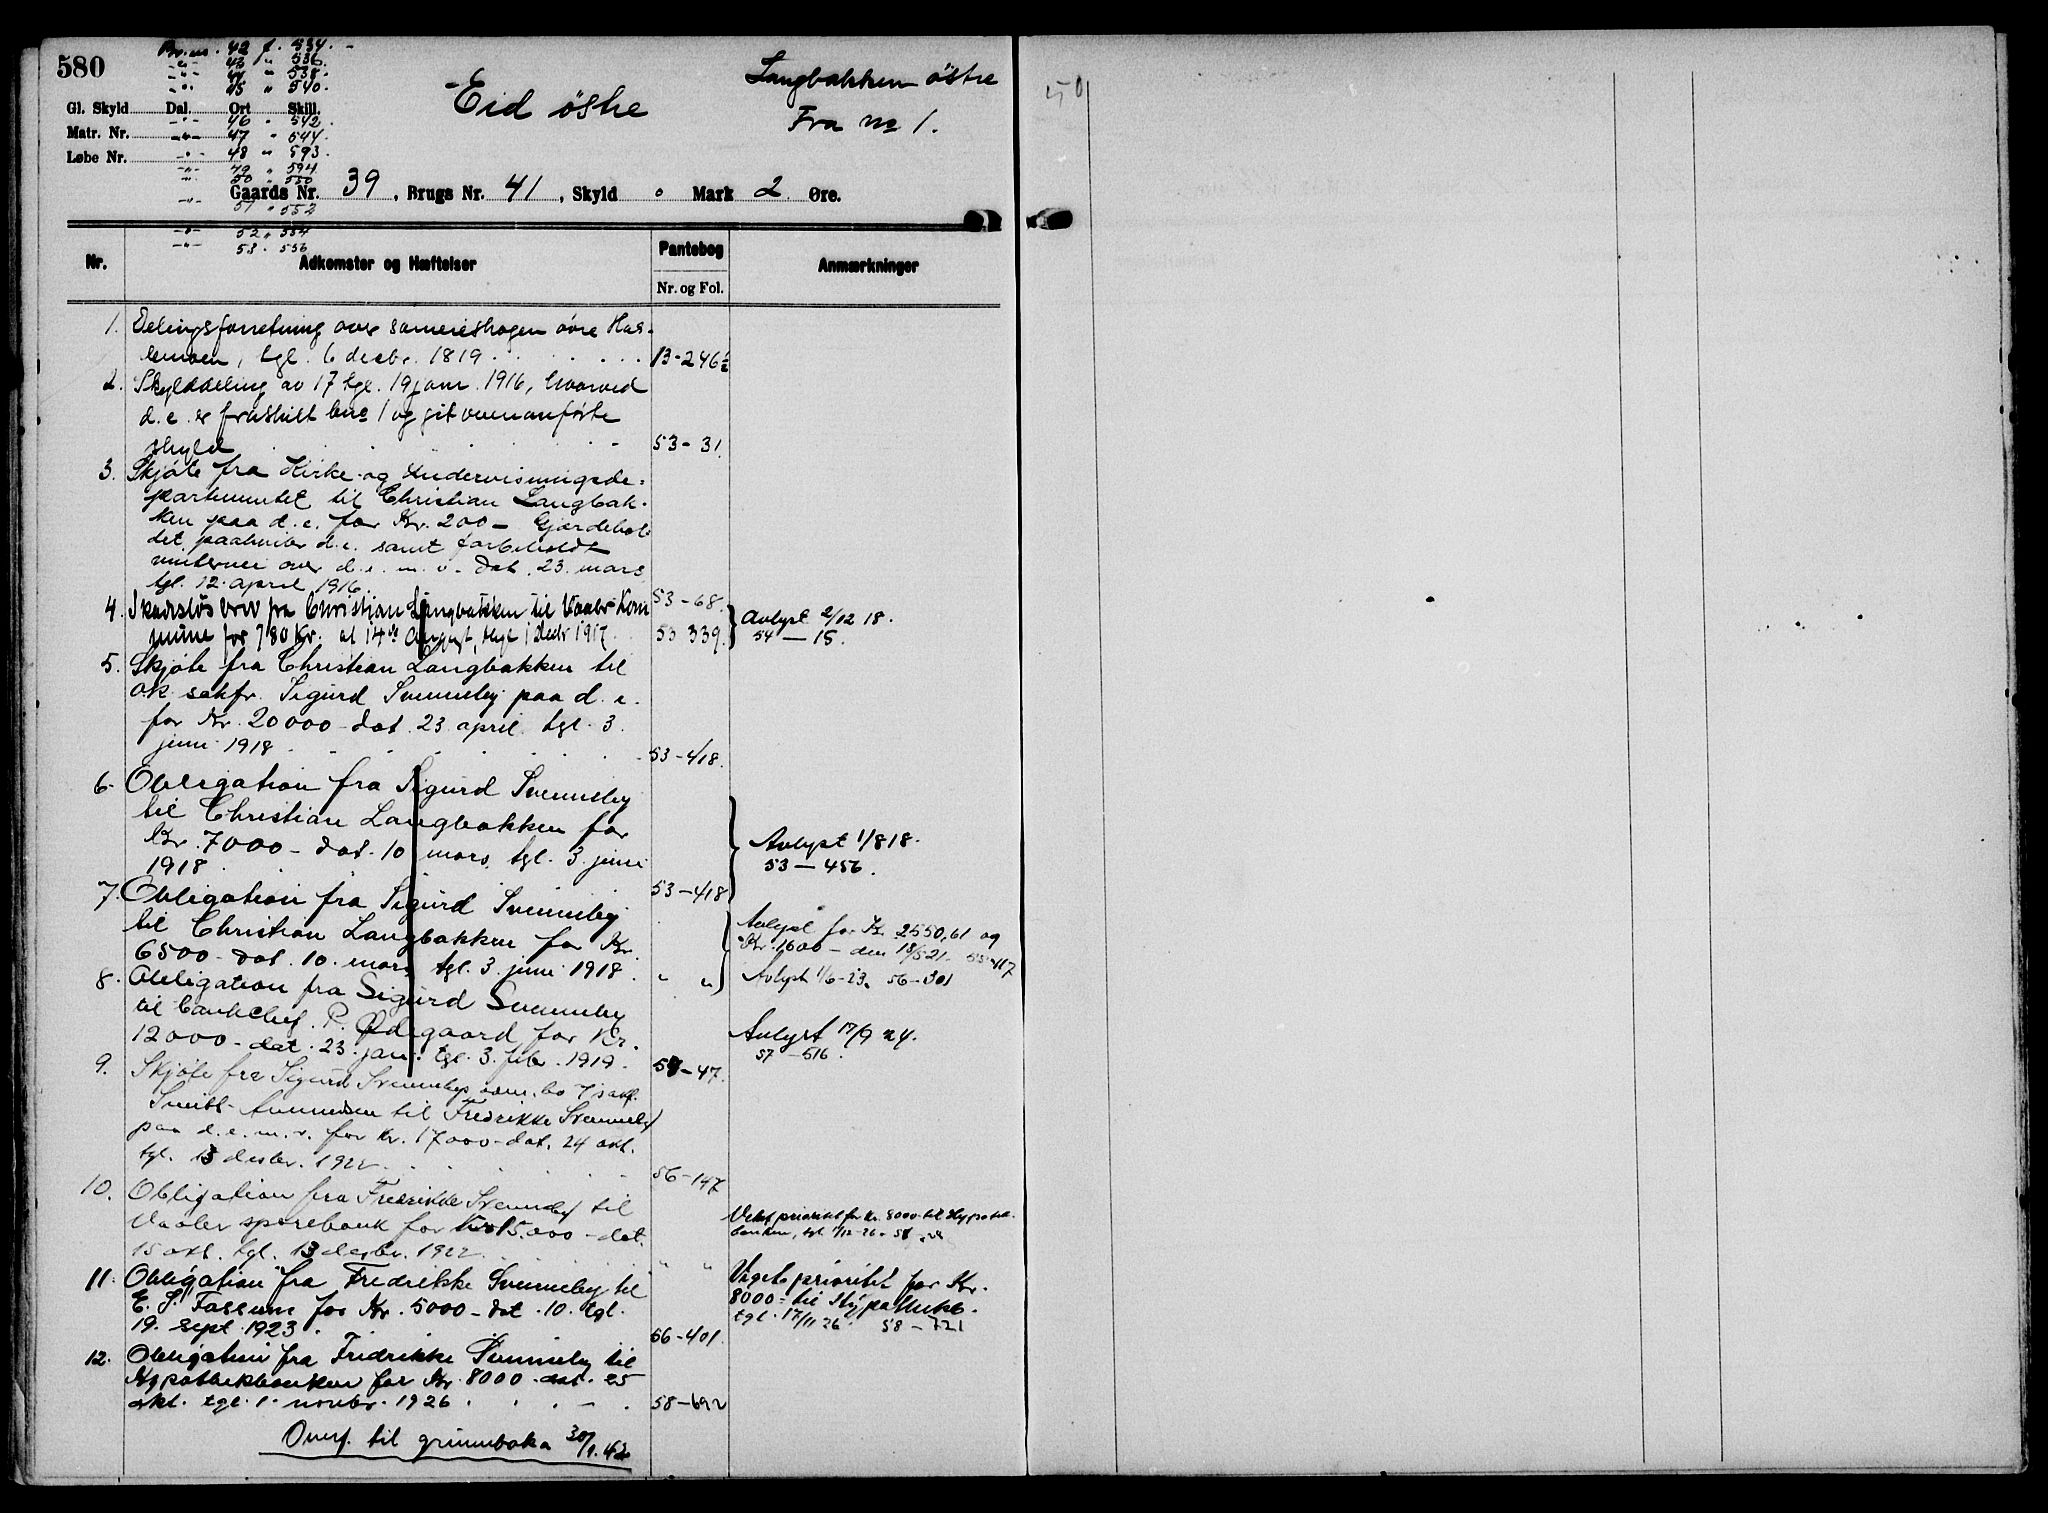 580
Br.nr. 42 f. 534.
-"- 43 " 536.
-"- 44 " 538.
-"- 45 " 540.
Gl. Skyld Dal. Ort Skill.
-"- 46 " 542.
Matr. Nr. -"- 47 " 544.
Løbe Nr. -"- 48 " 593.
-"- 49 " 594
-"- 50 " 550
Eid östre
Langbakken östre
Fra no 1.
Gaards Nr. 39, Brugs Nr. 41, Skyld 0 Mark 2 Øre.
-"- 51 " 552
-"- 52 " 554
-"- 53 " 556
Nr. Adkomster og Hæftelser Pantebog Nr. og Fol. Anmærkninger
1. Delingsforretning over sameieshagen övre Has-
lemoen, tgl. 6 decbr. 1819 13-246½
2. Skylddeling av 17 tgl. 19 janr. 1916, hvorved
d. e. er fraskilt bno 1 og git ovenanförte
skyld 53-31.
3. Skjöte fra Kirke- og Undervisningsde-
partementet til Christian Langbak-
ken paa d. e. for Kr. 200- Gjærdehol-
det paahviler d. e. samt forbeholdt
vintervei over d. e. m. v. dat. 23. mars
tgl. 12. april 1916 53-68.
4. Skadeslösbrev fra Christian Langbakken til Vaaler Kom
mune for 780 Kr. af 14de August, thgl 1 Decbr 1917. 53 339. Avlyst 2/12 18.
54-15.
5. Skjöte fra Christian Langbakken til
o.r. sakfr. Sigurd Svenneby paa d. e.
for Kr. 20000- dat. 23 april tgl. 3.
juni 1918 53-418.
6. Obligation fra Sigurd Svenneby
til Christian Langbakken for
Kr. 7000- dat. 10 mars, tgl. 3. juni
1918 53-418 Avlyst 1/8 18.
53-456.
7. Obligation fra Sigurd Svenneby
til Christian Langbakken for Kr.
6500- dat. 10. mars tgl. 3. juni 1918. " " Avlyst for Kr. 2550,61 og
Kr. 1600- den 18/5 21. 55-117
Avlyst 1/6-23. 56-301
8. Obligation fra Sigurd Svenneby
til bankchef. P. Ødegaard for Kr.
12000- dat. 23. jan. tgl. 3. febr. 1919. 54-47. Avlyst 17/9 24.
57-516.
9. Skjöte fra Sigurd Svennebys kom. bo v/ sakf.
Smitt-Amundsen til Fredrikke Svenneby
paa d. e. m. v. for kr. 17000- dat. 24 okt.
tgl. 13 desbr. 1922 56-147
10. Obligation fra Fredrikke Svenneby til
Vaaler sparebank for Kr 15.000- dat.
15 okt. tgl. 13 desbr. 1922 " " Veket prioritet for Kr. 8000- til Hypotek-
banken, tgl 1/12-26. 58
11. Obligation fra Fredrikke Svenneby til
E. S. Fossum for Kr. 5000- dat. 10. tgl.
19. sept. 1923. 56-401. Veget prioritet for Kr.
8000- til Hypothekb.
tgl. 17/11 26. 58-721
12. Obligation fra Fredrikke Svenneby til
Hypothekbanken for Kr. 8000- dat. 25
okt. tgl. 1. novbr. 1926. 58-692
Overf. til grunnboka 30/1.42
50